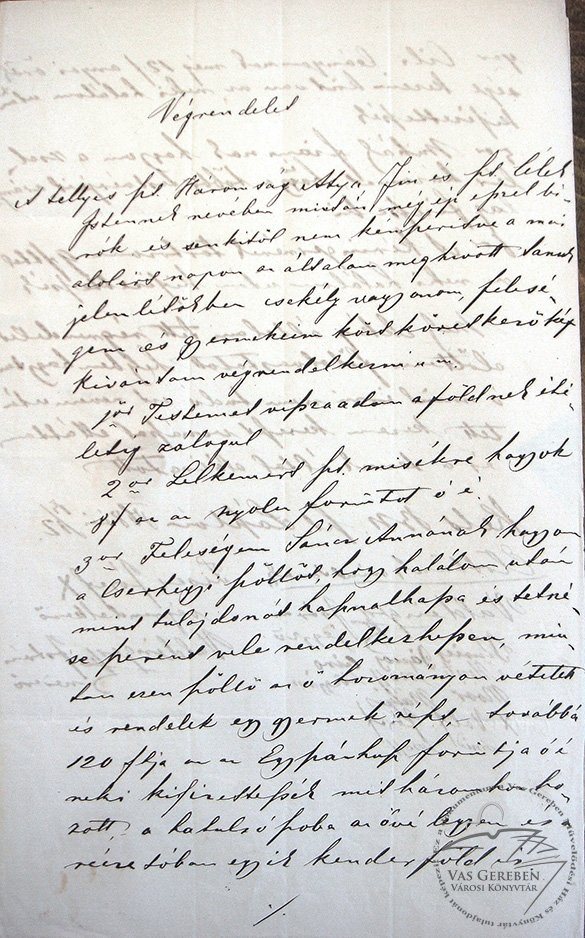 Végrendelet
A tellyes szt. Háromság Atya, Fiu és szt. lélek
Istennek nevében miután még ép eszrel bi-
rok és senkitöl nem kénszeritve a mai
alolirt napon az általam meghivott Tanuk
jelenlétökben csekély vagyonom felesé-
gem és gyermekeim közt következöképp
kivántam végrendelkezni u. m.
1ör Testemet viszaadom a földnek ité-
letig zálogul
2or Lelkemért szt. misékre hagyok
8f az az nyolcz forintot ó é.
3or Feleségem Annának hagyom
a Cserhegyi szöllöt, hogy halálom után
mint tulajdonát használhassa és tetszé-
se szerént vele rendelkezhessen, miu-
tán ezen szöllö az ö hozományan vétetett
és rendelek egy gyermek részt, továbbá
120 az az forintja ó é
neki kifizettessék mit hozzám ho-
zott, a hatulsó szoba az övé legyen és
egyik kender föld és
./.
VAS GEREBEN
VÁROSI KÖNYVTÁR